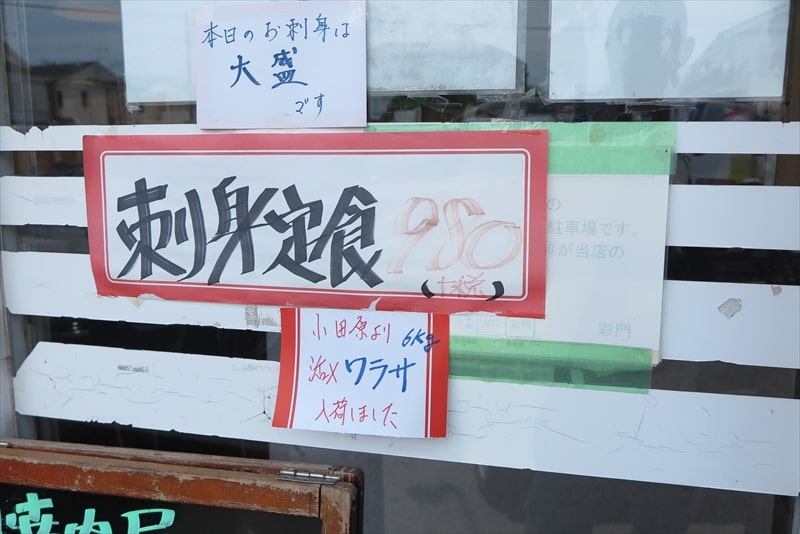 本日のお刺身は
大盛
です
刺身定食 980
(+税)
の
駐車場です。
が当店の
彩門
小田原より 6kg
活〆ワラサ
入荷しました
焼肉